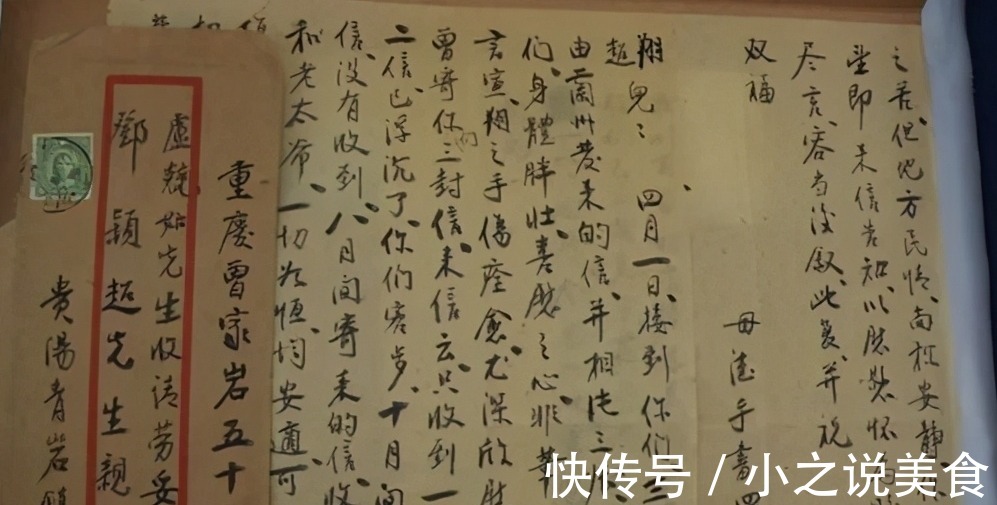 之苦、但地方民情尚極安靜、
望即来信告知、以慰懸怀、
尽言、容当後敘、此复、并祝
双福
母德手書 四
翔超兒：四月一日、接到你们三
由蘭州發来的信、并相片三
们、身體胖壮、喜慰之心、非筆
言宣、翔之手傷痊愈、尤深欣慰
曾寄你们三封信、来信云、只收到一
二信已浮沉了、你们客岁、十月间
信、没有收到、八月间寄来的信、收
和老太爷、一切如恒、均安適、可
重慶曾家岩五十
盧兢如先生收請勞妥
鄧穎超先生親
貴陽青岩鎮
快传号／小之说美食